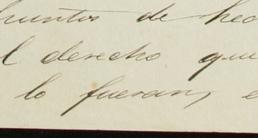 puntos de hec
l derecho que
lo fueran, e